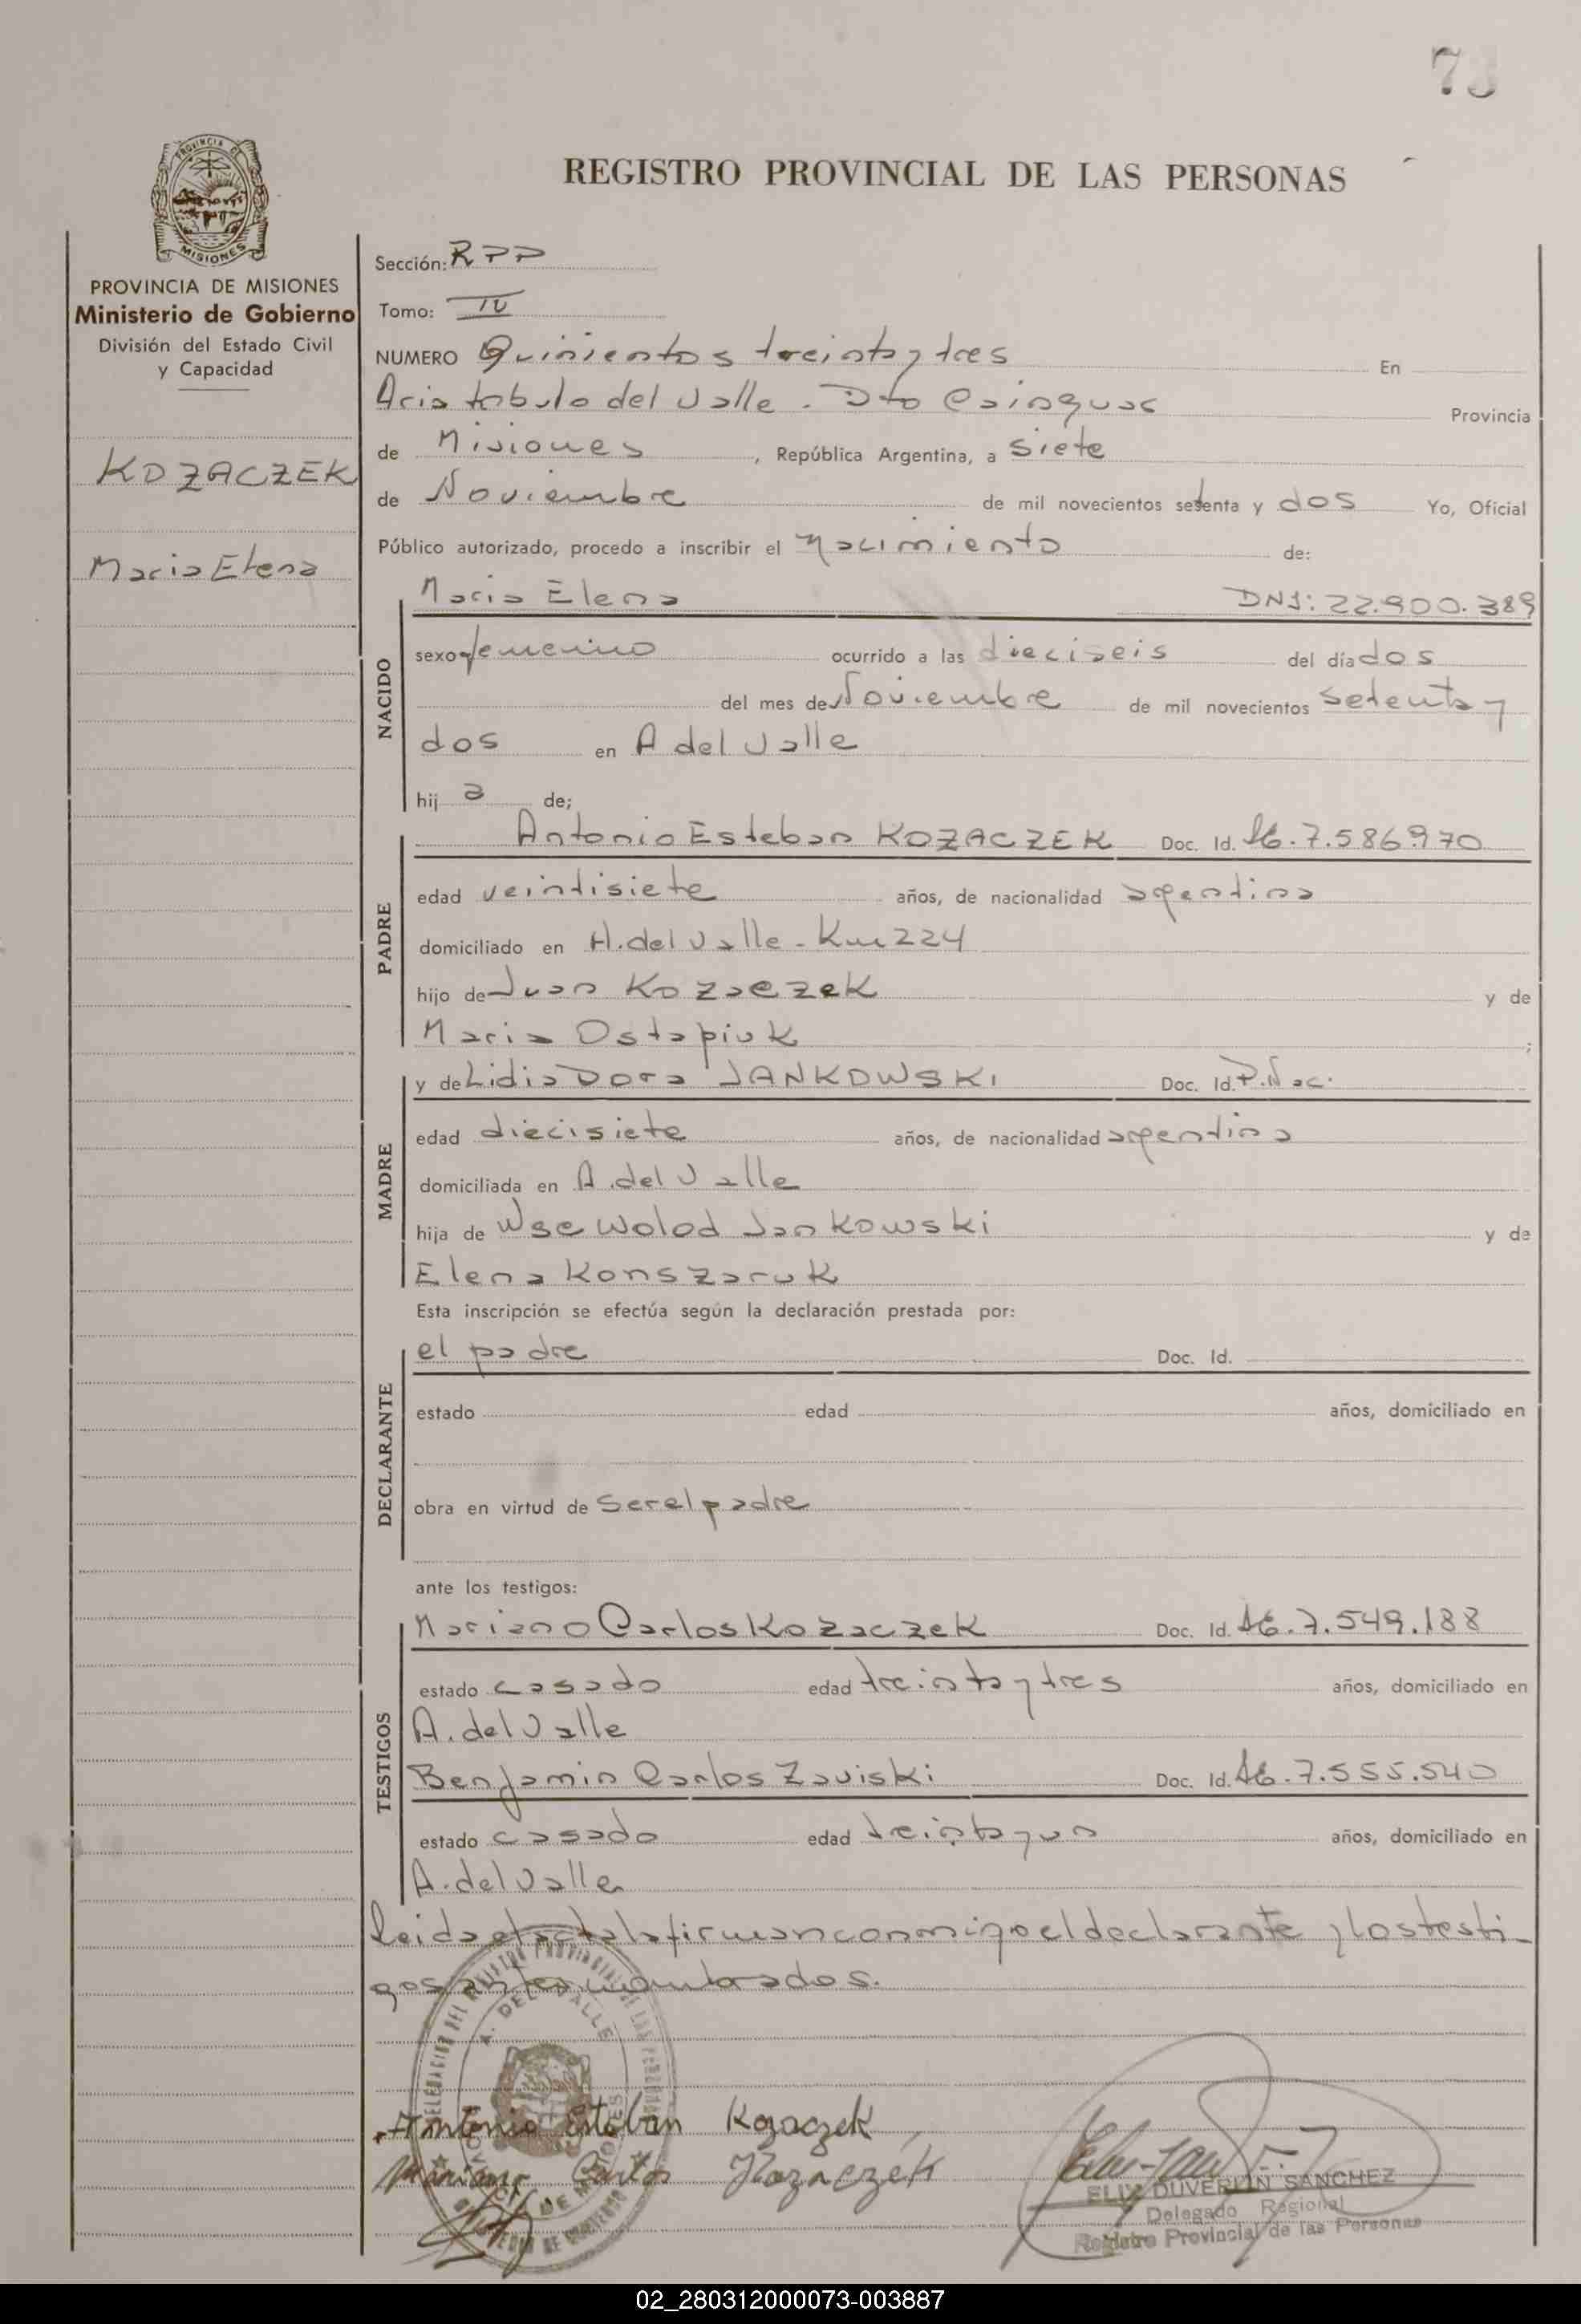 73
PROVINCIA DE MISIONES
PROVINCIA DE MISIONES
Ministerio de Gobierno
División del Estado Civil
y Capacidad
KOZACZEK
Maria Elena
REGISTRO PROVINCIAL DE LAS PERSONAS
Sección: RPP
Tomo: IV
NUMERO Quinientos treinta y tres En
Aristobulo del Valle - Dto Cainguas Provincia
de Misiones, República Argentina, a siete
de Noviembre de mil novecientos setenta y dos Yo, Oficial
Público autorizado, procedo a inscribir el nacimiento de:
NACIDO
Maria Elena DNI: 22.900.389
sexo femenino ocurrido a las dieciseis del día dos
del mes de Noviembre de mil novecientos setenta y
dos en A del Valle
hij a de;
PADRE
Antonio Esteban KOZACZEK Doc. Id. 7.586.970
edad veintisiete años, de nacionalidad argentina
domiciliado en A. del Valle - Km 224
hijo de Juan Kozaczek y de
Maria Ostapiuk ;
MADRE
y de Lidia Dora JANKOWSKI Doc. Id. P. Nac.
edad diecisiete años, de nacionalidad argentina
domiciliada en A. del Valle
hija de Wsewolod Jankowski y de
Elena Konszaruk
Esta inscripción se efectúa según la declaración prestada por:
DECLARANTE
el padre Doc. Id.
estado edad años, domiciliado en
obra en virtud de ser el padre
ante los testigos:
TESTIGOS
Mariano Carlos Kozaczek Doc. Id. 7.549.188
estado casado edad treinta y tres años, domiciliado en
A. del Valle
Benjamin Carlos Zaviski Doc. Id. 7.555.540
estado casado edad treinta y un años, domiciliado en
A. del Valle
Leida el acta la firman conmigo el declarante y los testi-
gos antes nombrados.
A. DEL VALLE
Antonio Esteban Kozaczek
Mariano Carlos Kozaczek
DUVERLIN SANCHEZ
Delegado Regional
Registro Provincial de las Personas
02_280312000073-003887